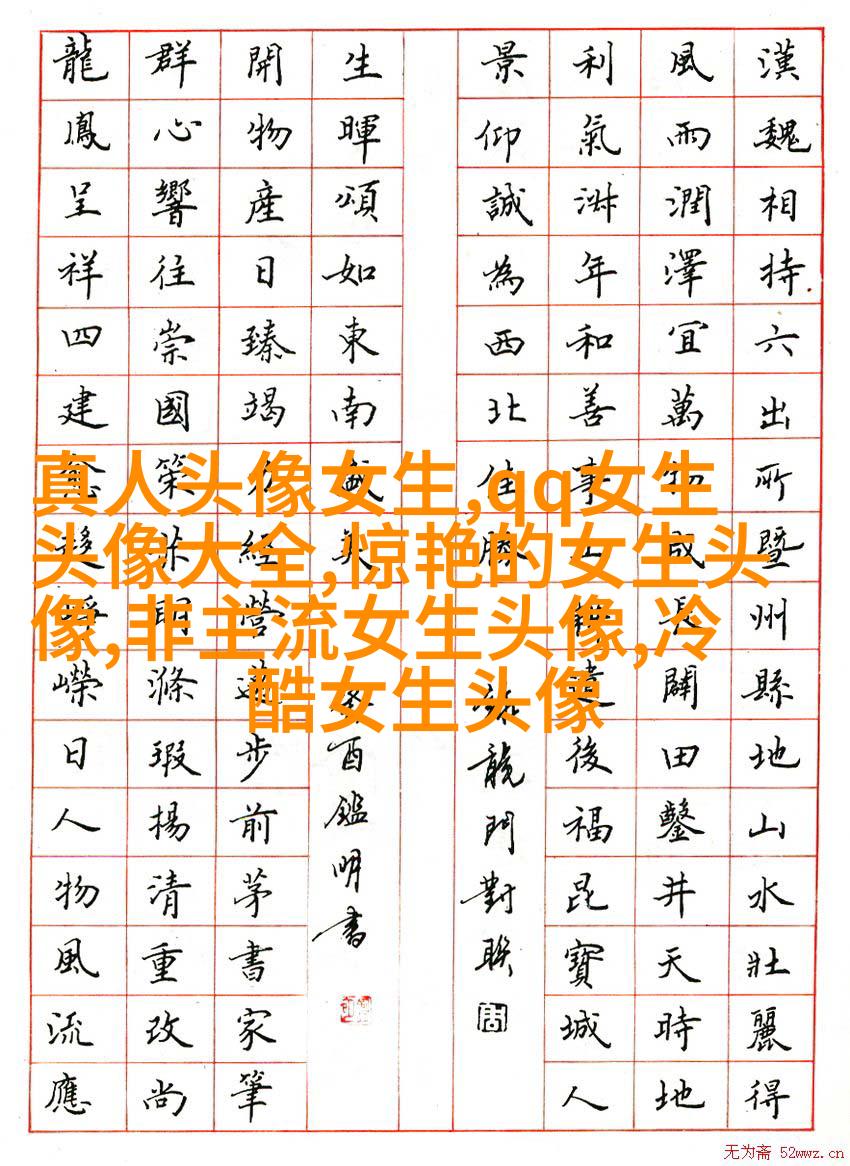 漢魏相持六出所暨州縣地山水壯麗得
風雨潤澤宜萬物成長闢田鑿井天時地
利氣年和善事後福昆寶城人
景仰誠為西北佳勝
龍門對聯
生暉頌如東南英
酉鑑明書
開物産日臻竭力經營步前茅書家筆
群心響往崇國策明滌瑕揚清重改尚
龍鳳呈祥四建嶸日人物風流應
真人头像女生,qq女生
头像大全,惊艳的女生头
像,非主流女生头像,冷
酷女生头像
无为斋 52wwz.cn